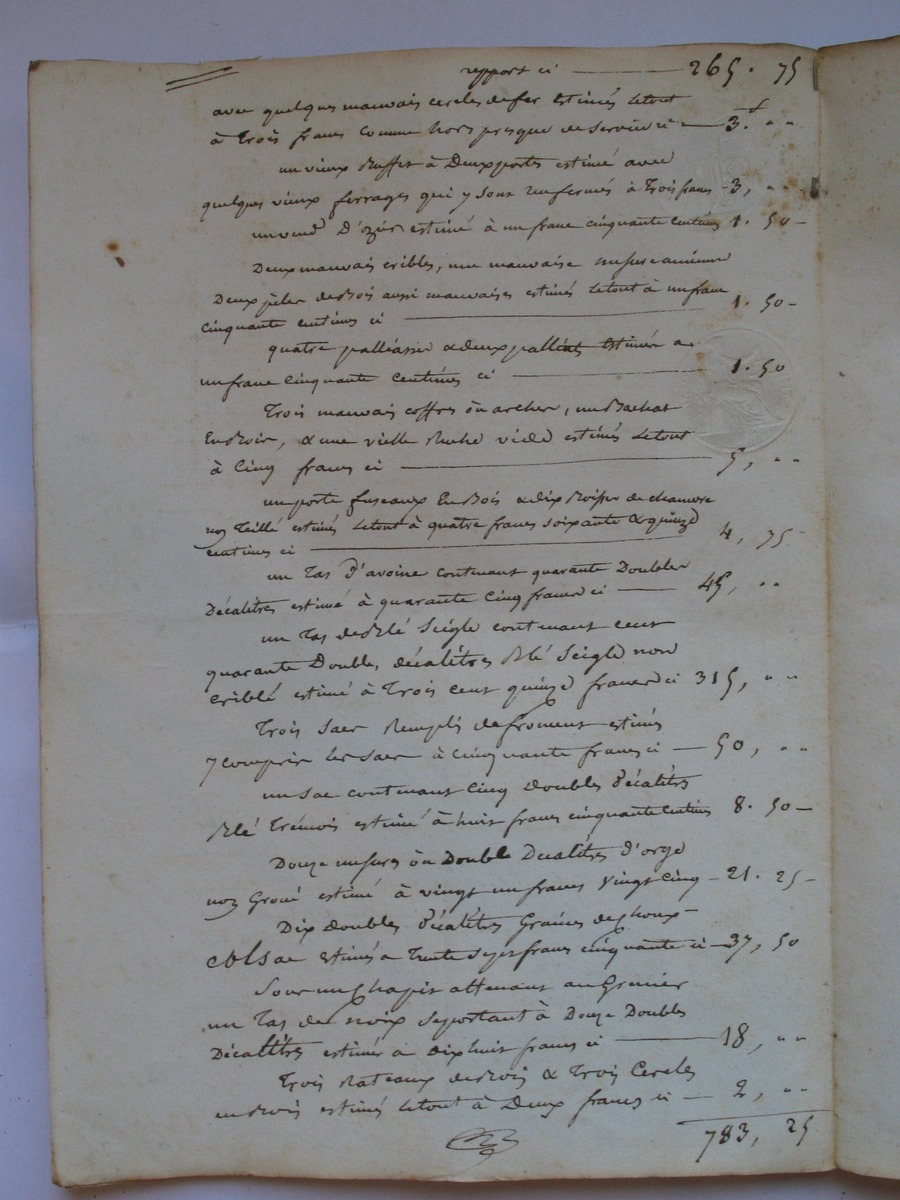 report ci 265. 75
avec quelques mauvais cercles de fer estimés letout
à Trois francs comme hors presque de service ci 3.f „ „
un vieux Buffet à Deux portes estimé avec
quelques vieux ferrages qui y sont renfermés à Trois francs 3, „ „
D'ozier estimé à un franc cinquante centimes 1. 50
Deux mauvais cribles, une mauvaise mesure
Deux pèles de Bois aussi mauvaises estimés letout à un franc
cinquante centimes ci 1. 50
quatre palliasses & deux estimés a
un franc cinquante centimes ci 1. 50
Trois mauvais coffres ou arches, un Bachat
En Bois, & une vielle Ruche vide estimés letout
à Cinq francs ci 5, „ „
un porte fuseaux En Bois & dix de chanvre
non Teillé estimés letout à quatre francs soixante & quinze
centimes ci 4, 75
un Tas D'avoine contenant quarante Doubles
Décalitres estimé à quarante Cinq francs ci 45, „ „
un Tas de Blé Seigle contenant cent
quarante Doubles, décalitres Blé Seigle non
criblé estimé à Trois cent quinze francs ci 315, „ „
Trois Sacs Remplis de froment estimés
y compris les sacs à cinquante francs ci 50, „ „
un Sac contenant Cinq Doubles Décalitres
Blé Trémois estimé à huit francs cinquante Centimes 8. 50
Douze mesures ou Double Decalitres d'orge
non Groué estimé à vingt un francs vingt Cinq 21. 25
Dix Doubles Décalitres Graines de choux
colsac estimés a Trente Sept francs cinquante ci 37, 50
Sous un Chapit attenant au Grenier
un Tas de noix Se portant à Douze Doubles
Décalitres estimés à dix huit francs ci 18, „ „
Trois Rateaux de Bois & Trois Cercles
en Bois estimés letout à Deux francs ci 2, „ „
783, 25